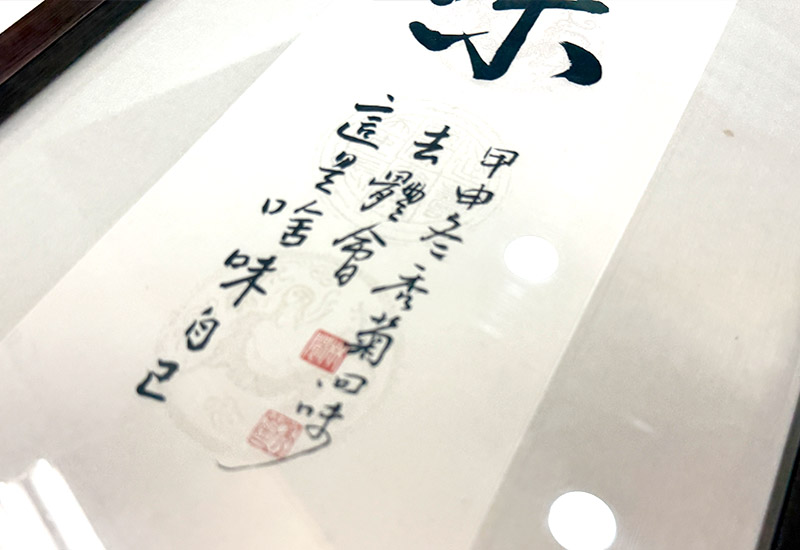 這是啥味自己
去體會
甲申冬秀菊回味